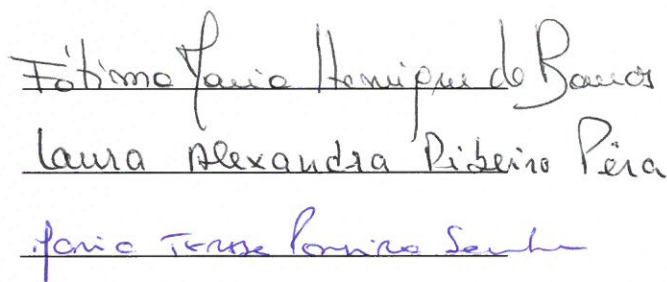 Fátima Maria Henriques de Barros
Laura Alexandra Ribeiro Pêra
Maria Teresa